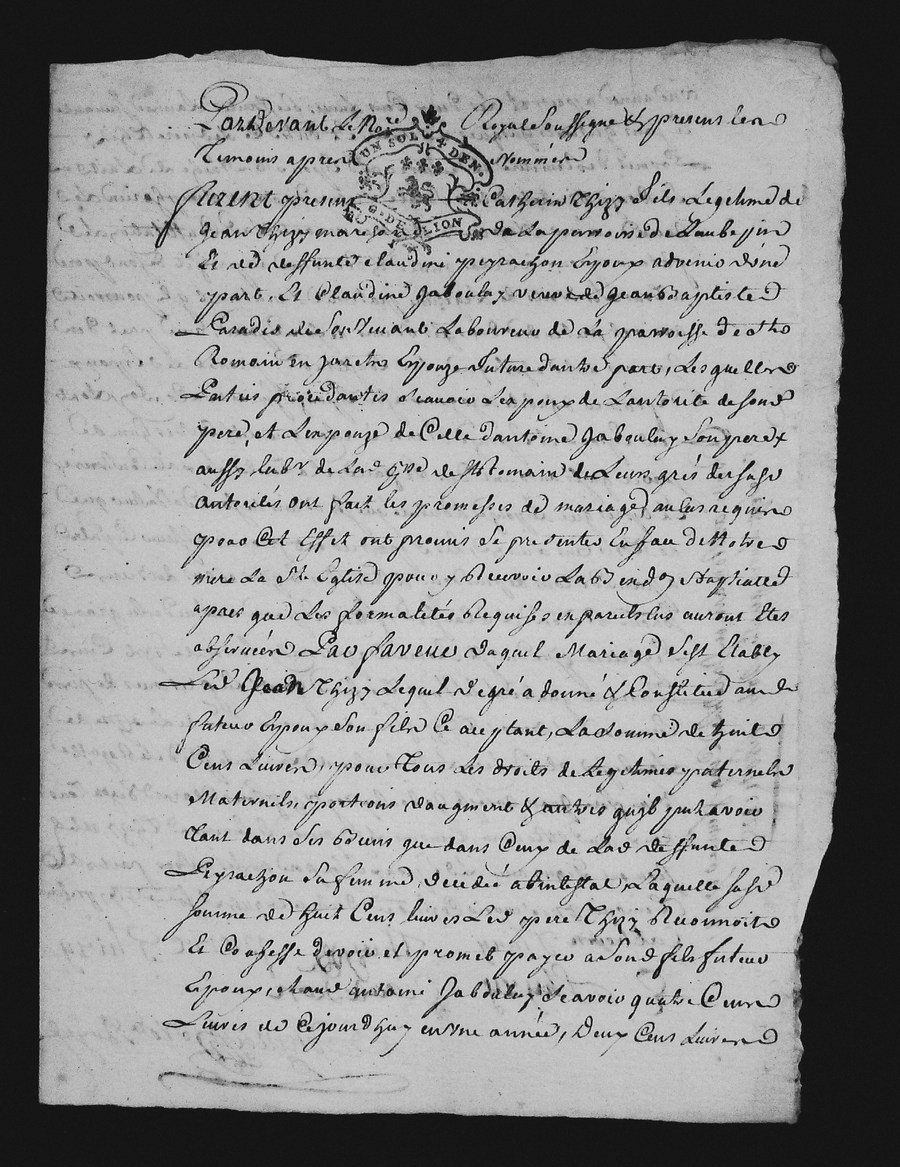 Pardevant le No.re Royal Soussigné & presens les
Temoins apres Nommés
UN SOL 4 DEN.
G. DE LION
furent presens Catherin Thizy fils Legitime de
Jean Thizy mare de La parroisse de Laubepin
Et de deffunte claudine peyrachon Epoux advenir d'une
part, Et Claudine Jaboulay veuve de Jean Baptiste
Paradis de Son vivant Laboureur de La parroisse de st
Romain en jarets Epouze future dautre part, Lesquelles
Parties procedantes Scavoir Lepoux de Lautorité de sond
pere, et Lepouze de Celle dantoine Jaboulay Son pere
aussy lab.r de Lad. p.sse de st Romain de Leurs grés de susd
autorités ont fait les promesses de mariage au cas requises
pour Cet Effet ont promis Se presenter En face de Notre
mere La S.te Eglise pour y Recevoir La Bened.on Nuptialle
apres que Les formalités Requises en pareils Cas auront Etés
observées Par faveur duquel Mariage S'est Etably
Led Jean Thizy Lequel de gré a donné & Constitué aud
futeur Epoux Son fils Ce aceptant, La Somme de huit
Cens Livres, pour Tous Les droits de Legitimes paternels
Maternels, portions daugment & autres quil peut avoir
tant dans Ses Biens que dans Ceux de Lad deffunte
Peyrachon Sa femme, decedée abintestat, Laquelle susd
somme de huit Cens livres Led pere Thizy Reconnoit
Et Confesse devoir et promet payer a Sond fils futeur
Epoux, & aud antoine Jaboulay Scavoir quatre Cens
Livres de Cejourdhuy en une année, Deux Cens Livres